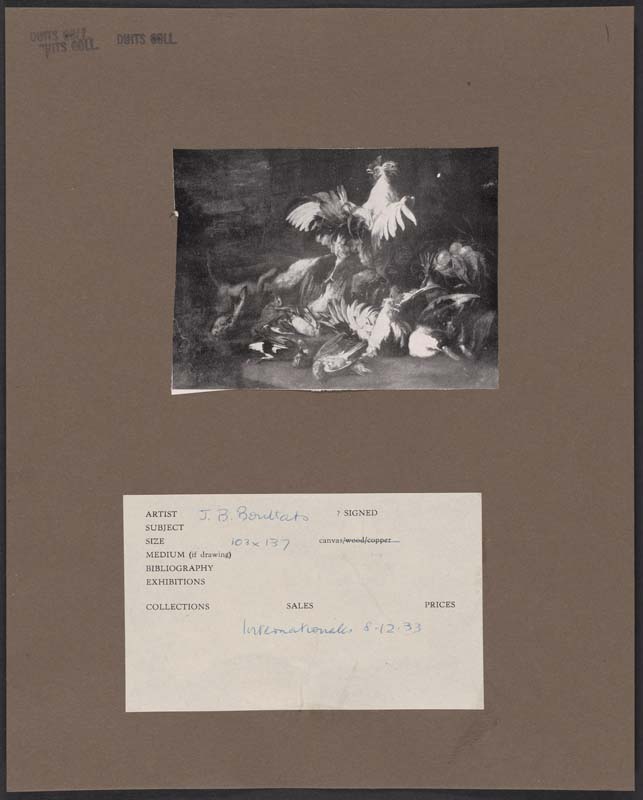 DUITS COLL.
DUITS COLL.
DUITS COLL.
ARTIST J. B. Bouttats ? SIGNED
SUBJECT
SIZE 103 x 137 canvas/wood/copper
MEDIUM (if drawing)
BIBLIOGRAPHY
EXHIBITIONS
COLLECTIONS SALES PRICES
Internationales 8.12.33